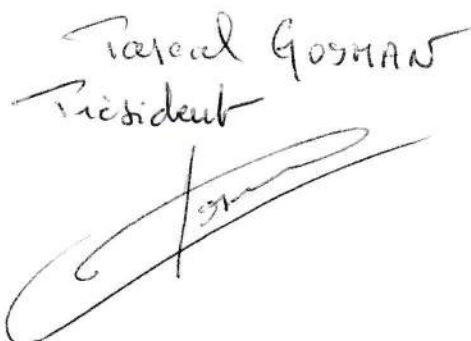 Pascal GOSMAN
Président